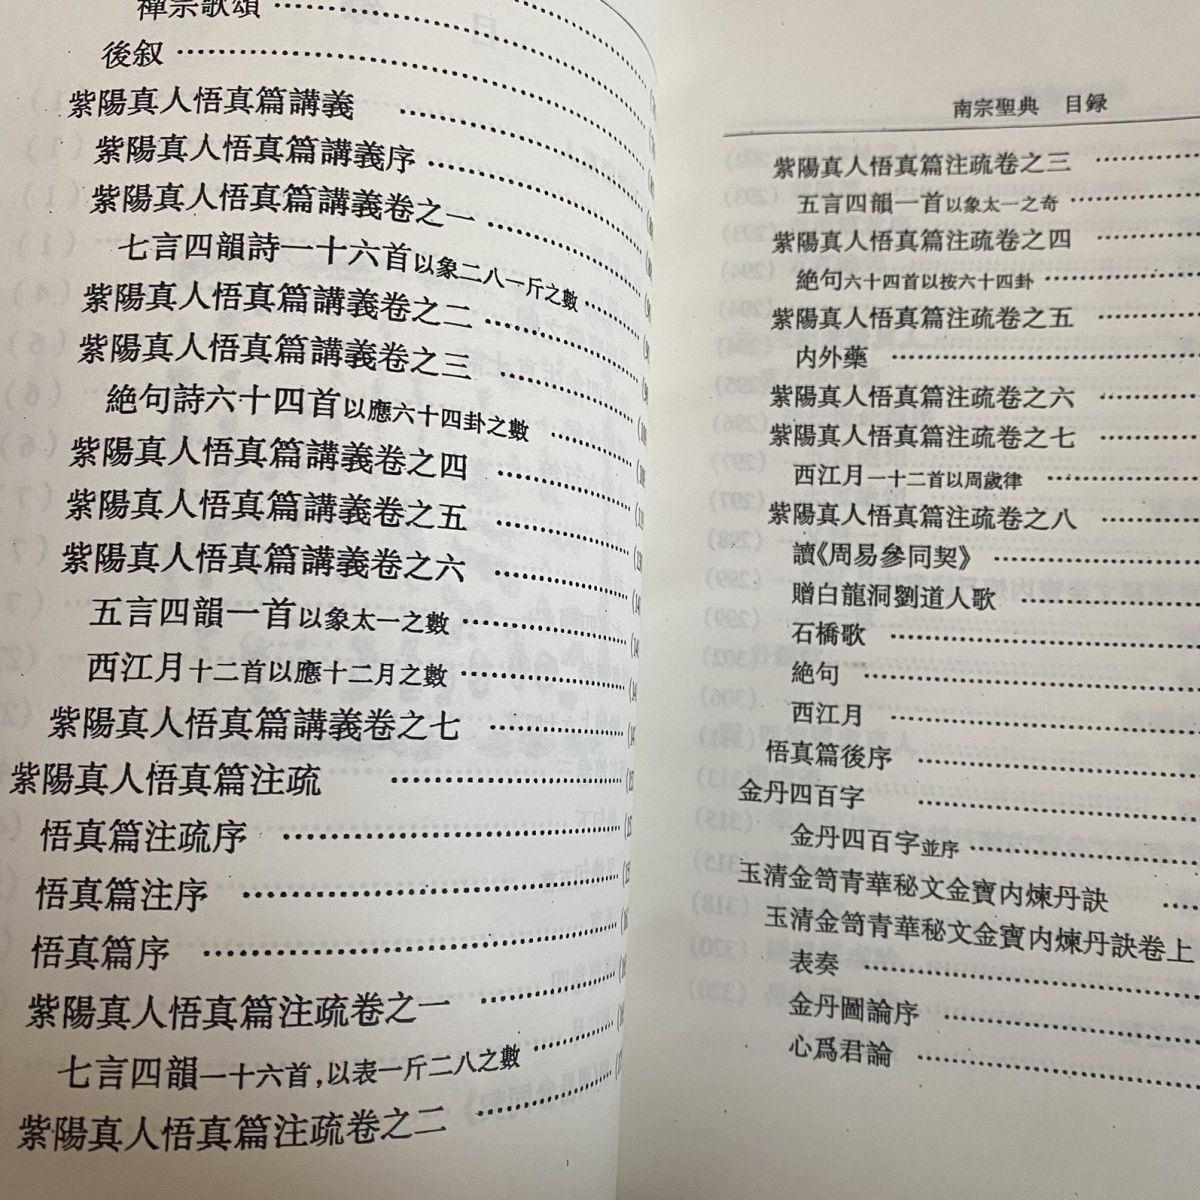 禪宗歌頌
後叙
紫陽真人悟真篇講義
紫陽真人悟真篇講義序
紫陽真人悟真篇講義卷之一
七言四韻詩一十六首以象二八一斤之數
紫陽真人悟真篇講義卷之二
紫陽真人悟真篇講義卷之三
絶句詩六十四首以應六十四卦之數
紫陽真人悟真篇講義卷之四
紫陽真人悟真篇講義卷之五
紫陽真人悟真篇講義卷之六
五言四韻一首以象太一之數
西江月十二首以應十二月之數
紫陽真人悟真篇講義卷之七
紫陽真人悟真篇注疏
悟真篇注疏序
悟真篇注序
悟真篇序
紫陽真人悟真篇注疏卷之一
七言四韻一十六首,以表一斤二八之數
紫陽真人悟真篇注疏卷之二
南宗聖典 目録
紫陽真人悟真篇注疏卷之三
五言四韻一首以象太一之奇
紫陽真人悟真篇注疏卷之四
絶句六十四首以按六十四卦
紫陽真人悟真篇注疏卷之五
内外藥
紫陽真人悟真篇注疏卷之六
紫陽真人悟真篇注疏卷之七
西江月一十二首以周歲律
紫陽真人悟真篇注疏卷之八
讀《周易參同契》
贈白龍洞劉道人歌
石橋歌
絶句
西江月
悟真篇後序
金丹四百字
金丹四百字並序
玉清金笥青華秘文金寶内煉丹訣
玉清金笥青華秘文金寶内煉丹訣卷上
表奏
金丹圖論序
心爲君論